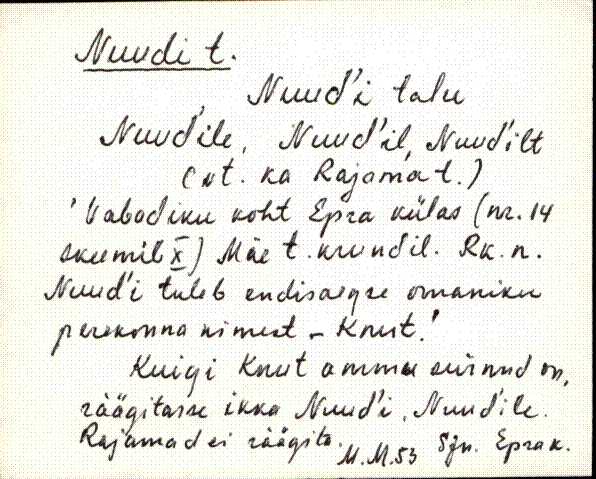 Nuudi t.
Nuud'i talu
Nuud'ile, Nuud'il, Nuud'ilt
(vt. ka Rajama t.)
'Vabadiku koht Epra külas (nr. 14
skeemil X) Mäe t. krundil. Rk. n.
Nuud'i tuleb endisaegse omaniku
perekonna nimest – Knut.'
Kuigi Knut ammu surnud on,
räägitasse ikka Nuud'i, Nuud'ile.
Rajamad ei räägita.
M.M.53 Sjn. Epra k.